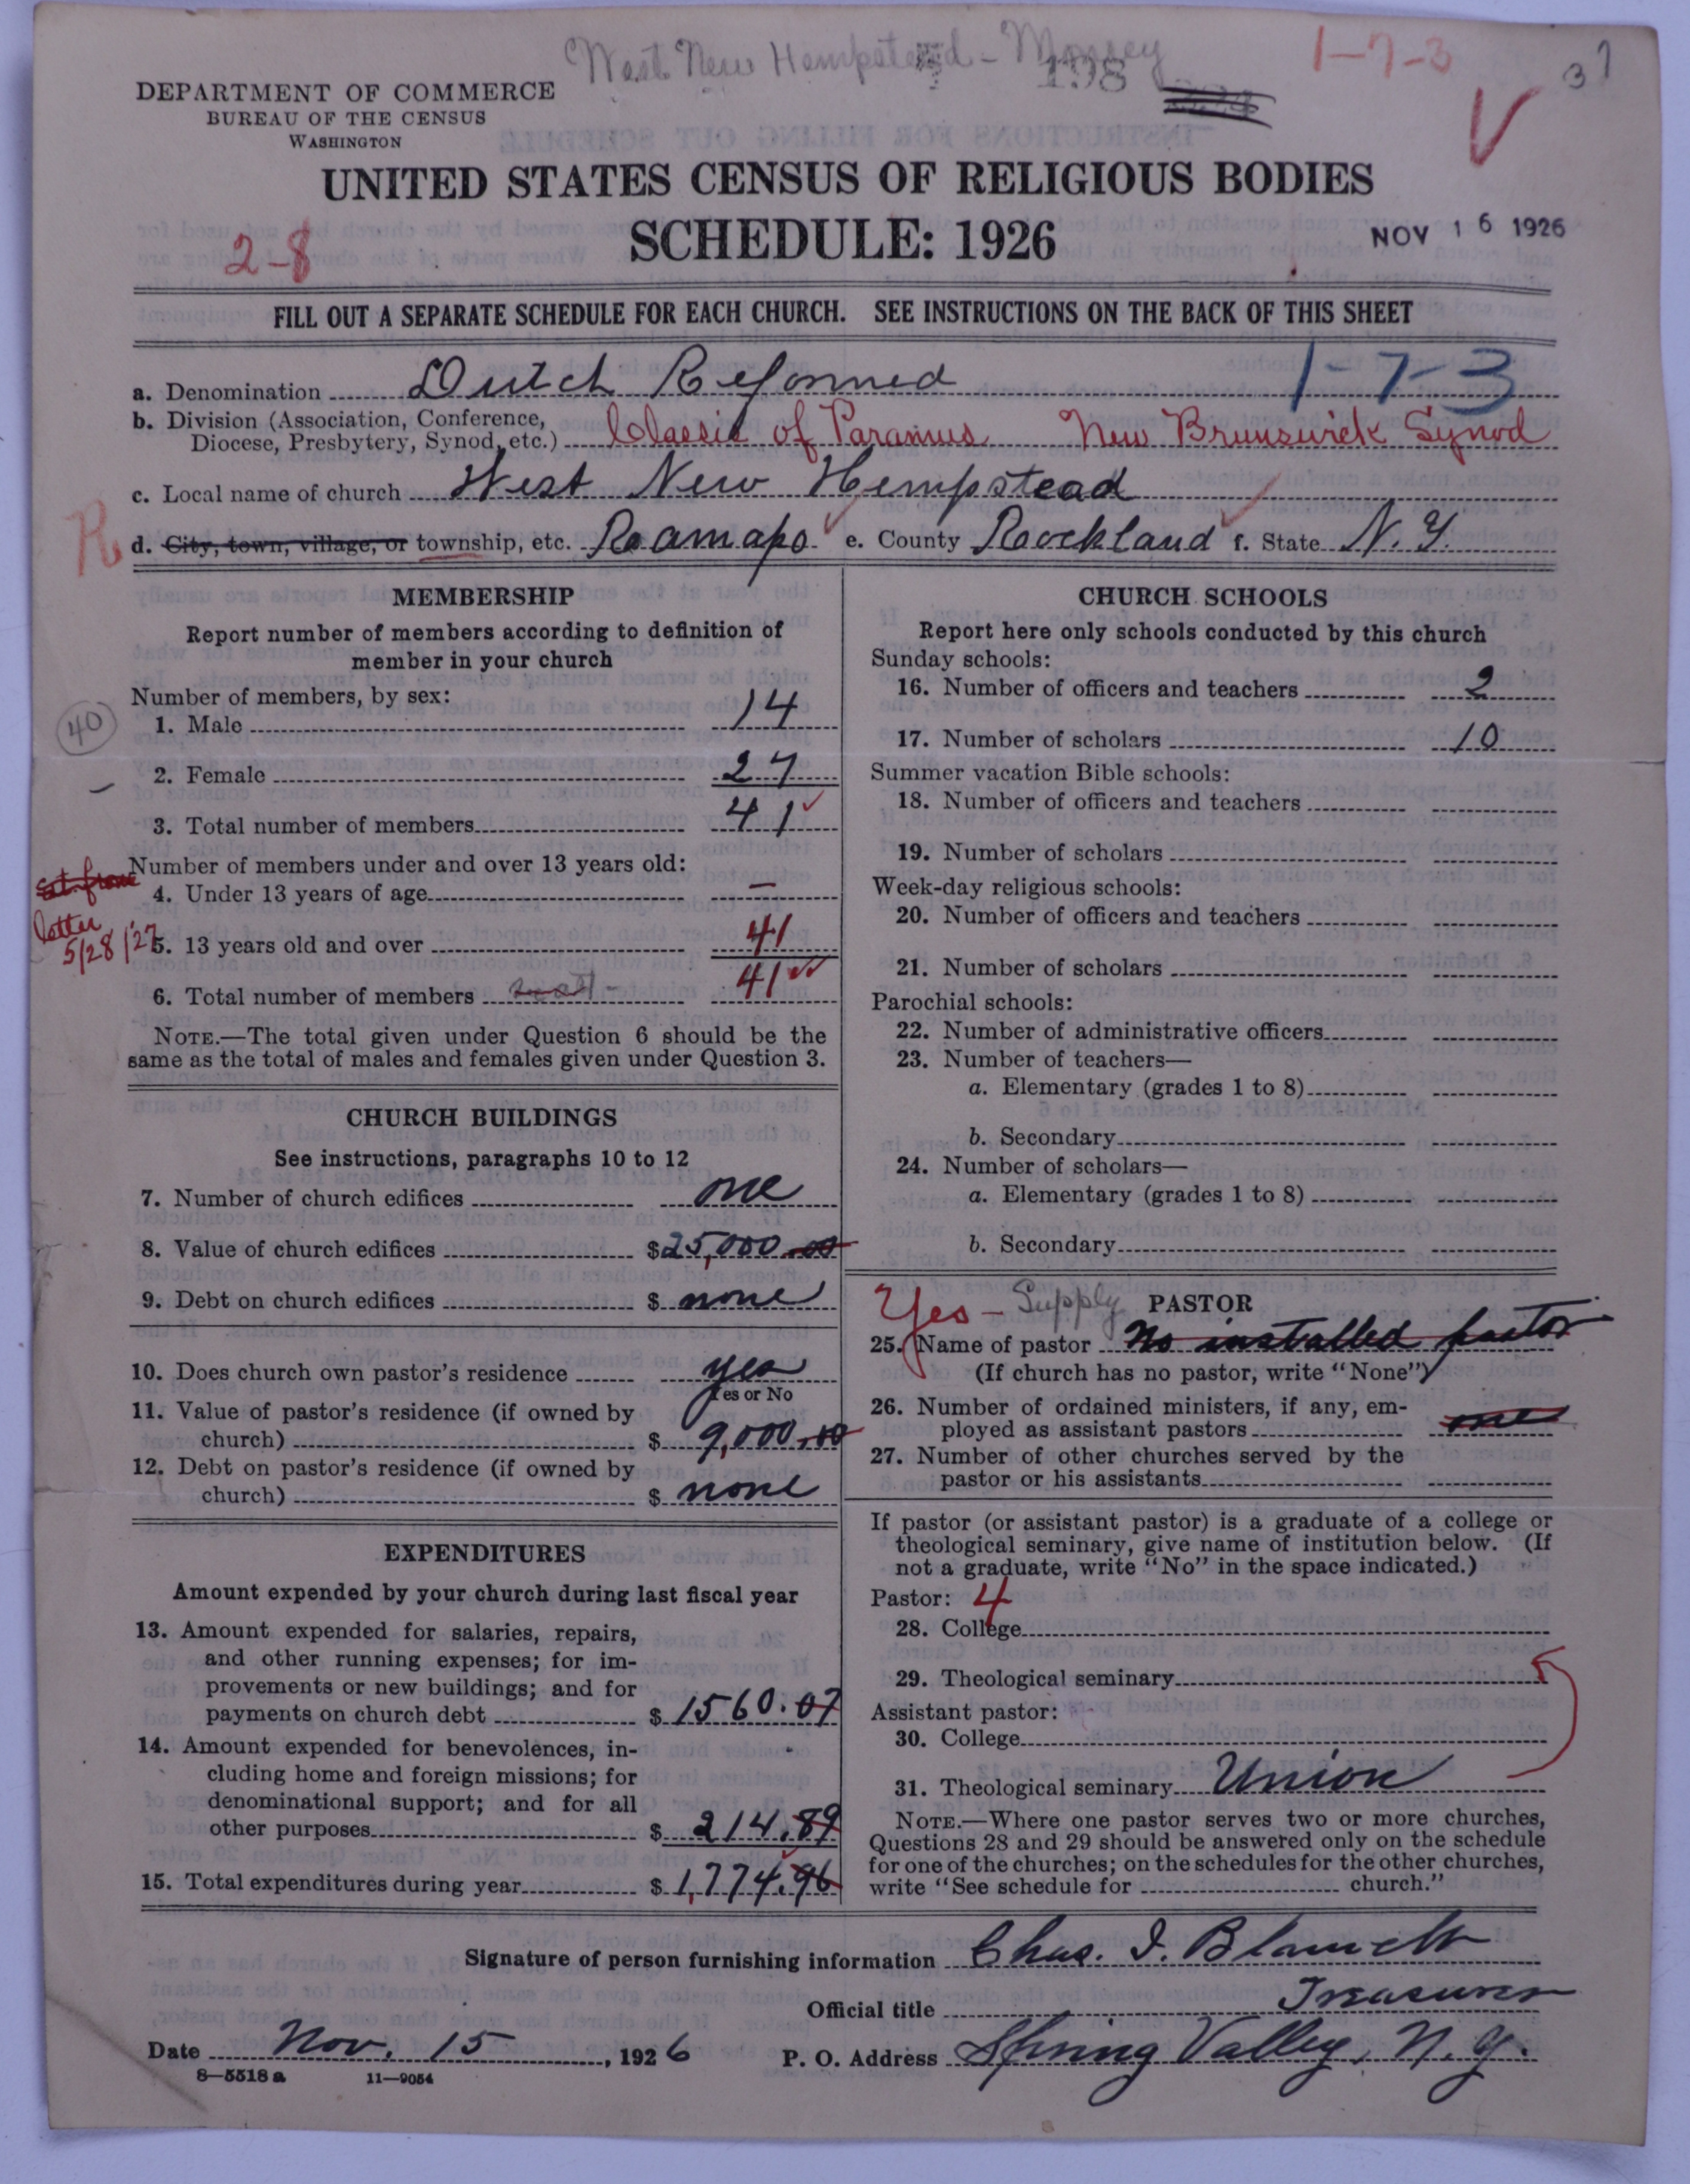 West New Hempstead - Monsey
198
1-7-3
37
DEPARTMENT OF COMMERCE
BUREAU OF THE CENSUS
WASHINGTON
V
UNITED STATES CENSUS OF RELIGIOUS BODIES
SCHEDULE: 1926
NOV 16 1926
2-8
FILL OUT A SEPARATE SCHEDULE FOR EACH CHURCH. SEE INSTRUCTIONS ON THE BACK OF THIS SHEET
a. Denomination Dutch Reformed 1-7-3
b. Division (Association, Conference,
Diocese, Presbytery, Synod, etc.) Classis of Paramus New Brunswick Synod
c. Local name of church West New Hempstead
R
d. City, town, village, or township, etc. Ramapo e. County Rockland f. State N.Y.
MEMBERSHIP
Report number of members according to definition of
member in your church
Number of members, by sex:
40
1. Male 14
2. Female 27
3. Total number of members 41
Number of members under and over 13 years old:
4. Under 13 years of age —
letter
5/28/27
5. 13 years old and over 41
6. Total number of members 41
NOTE.—The total given under Question 6 should be the
same as the total of males and females given under Question 3.
CHURCH BUILDINGS
See instructions, paragraphs 10 to 12
7. Number of church edifices one
8. Value of church edifices $25,000.00
9. Debt on church edifices $ none
10. Does church own pastor's residence yes
Yes or No
11. Value of pastor's residence (if owned by
church) $ 9,000.00
12. Debt on pastor's residence (if owned by
church) $ none
EXPENDITURES
Amount expended by your church during last fiscal year
13. Amount expended for salaries, repairs,
and other running expenses; for im-
provements or new buildings; and for
payments on church debt $ 1560.07
14. Amount expended for benevolences, in-
cluding home and foreign missions; for
denominational support; and for all
other purposes $ 214.89
15. Total expenditures during year $ 1,774.96
CHURCH SCHOOLS
Report here only schools conducted by this church
Sunday schools:
16. Number of officers and teachers 2
17. Number of scholars 10
Summer vacation Bible schools:
18. Number of officers and teachers
19. Number of scholars
Week-day religious schools:
20. Number of officers and teachers
21. Number of scholars
Parochial schools:
22. Number of administrative officers
23. Number of teachers—
a. Elementary (grades 1 to 8)
b. Secondary
24. Number of scholars—
a. Elementary (grades 1 to 8)
b. Secondary
Yes - Supply PASTOR
25. Name of pastor No installed pastor
(If church has no pastor, write "None")
26. Number of ordained ministers, if any, em-
ployed as assistant pastors one
27. Number of other churches served by the
pastor or his assistants
If pastor (or assistant pastor) is a graduate of a college or
theological seminary, give name of institution below. (If
not a graduate, write "No" in the space indicated.)
Pastor: 4
28. College
29. Theological seminary
Assistant pastor:
30. College
31. Theological seminary Union
NOTE.—Where one pastor serves two or more churches,
Questions 28 and 29 should be answered only on the schedule
for one of the churches; on the schedules for the other churches,
write "See schedule for church."
Signature of person furnishing information Chas. I. Blauvelt
Official title Treasurer
Date Nov. 15, 1926 P. O. Address Spring Valley, N.Y.
8—5518 a 11—9054